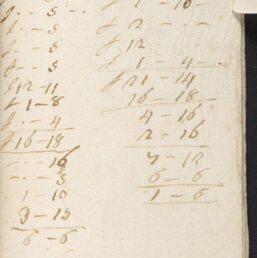 £ . - 5 - .
£ . - 5
£ . - 5
£ . - 5
£ 12 - 11
£ 1 - 8
£ . - 4
£ 16 - 18
. . - 16
. . - 3
1 - 10
3 - 15
6 - 6
£ 1 - 10 -
£ 2 - . -
£ 12
£ 1 - 4 - .
£ 21 - 14
16 - 18 -
4 - 16
2 - 16
7 - 12
6 - 6
1 - 6